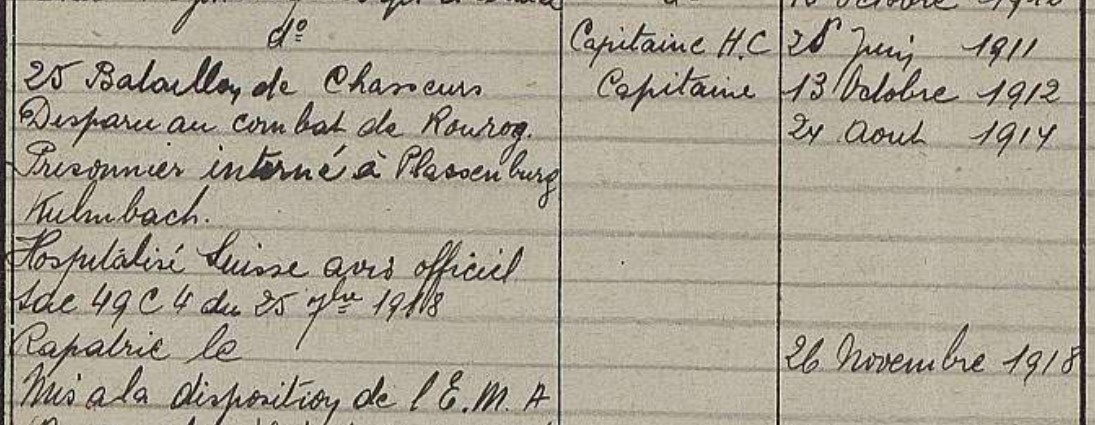 Octobre 1912
dº Capitaine H.C 28 Juin 1911
25 Bataillon de Chasseurs Capitaine 13 Octobre 1912
Disparu au combat de Rourog. 24 Aout 1914
Prisonnier interné à Plassenburg
Kulmbach.
Hospitalisé Suisse avis officiel
49 C 4 du 25 7bre 1918
Rapatrié le 26 Novembre 1918
Mis a la disposition de l'E.M.A